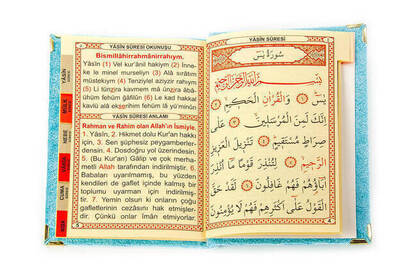 YÂSÎN SÛRESİ OKUNUŞU
Bismillâhirrahmânirrahym.
Yâsîn (1) Vel kur'ânil hakiym (2) İnne-
ke le minel murseliyn (3) Alâ sırâtım
müstekıym (4) Tenziylel aziyzir rahıym
(5) Li tünzira kavmem mâ ünzira âbâ-
ühüm fehüm ğâfilûn (6) Le kad hakkal
kavlü alâ ekserihim fehüm lâ yü'minûn
YÂSÎN SÛRESİ ANLAMI
Rahman ve Rahim olan Allah'ın İsmiyle.
1. Yâsîn, 2. Hikmet dolu Kur'an hakkı
için, 3. Sen şüphesiz peygamberler-
densin. 4. Dosdoğru yol üzerindesin.
5. (Bu Kur'an) Gâlip ve çok merha-
metli Allah tarafından indirilmiştir. 6.
Babaları uyarılmamış, bu yüzden
kendileri de gaflet içinde kalmış bir
toplumu uyarman için indirilmiş-
tir. 7. Yemin olsun ki onların çoğu
gafletlerinin cezasını hak etmişler-
dir. Çünkü onlar îman etmiyorlar.
YÂSİN
MÜLK
NEBE
CUMA
YÂSİN SÛRESİ
سُورَةُ يٰسٓ
بِسْمِ اللّٰهِ الرَّحْمٰنِ الرَّحِيمِ
يٰسٓ ﴿١﴾ وَالْقُرْاٰنِ الْحَكِيمِ ﴿٢﴾
اِنَّكَ لَمِنَ الْمُرْسَلِينَ ﴿٣﴾ عَلٰى
صِرَاطٍ مُسْتَقِيمٍ ﴿٤﴾ تَنْزِيلَ الْعَزِيزِ
الرَّحِيمِ ﴿٥﴾ لِتُنْذِرَ قَوْمًا مَٓا اُنْذِرَ
اٰبَٓاؤُهُمْ فَهُمْ غَافِلُونَ ﴿٦﴾ لَقَدْ حَقَّ
الْقَوْلُ عَلٰٓى اَكْثَرِهِمْ فَهُمْ لَا يُؤْمِنُونَ